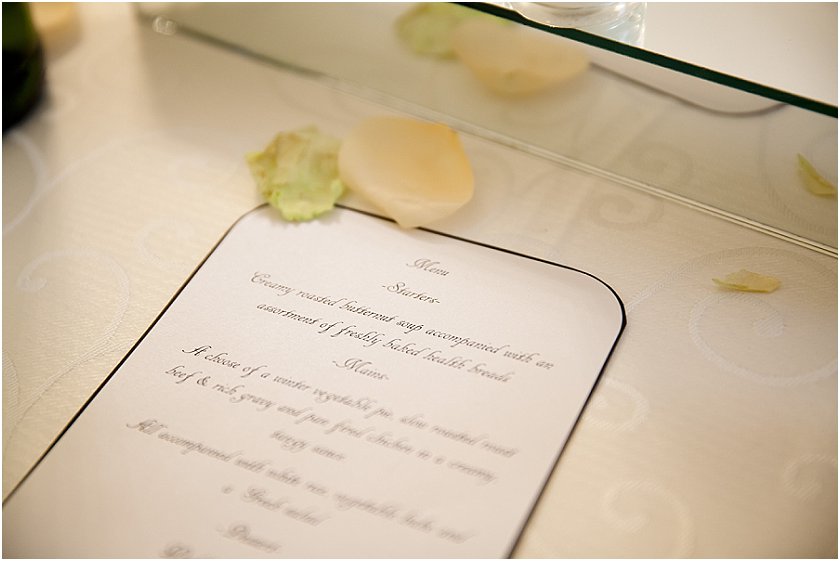 Menu
-Starters-
Creamy roasted butternut soup accompanied with an
assortment of freshly baked health breads
-Mains-
A choose of a winter vegetable pie, slow roasted roast
beef & rich gravy and pan fried chicken in a creamy
sauce
All accompanied with white rice, vegetable bake and
a Greek salad